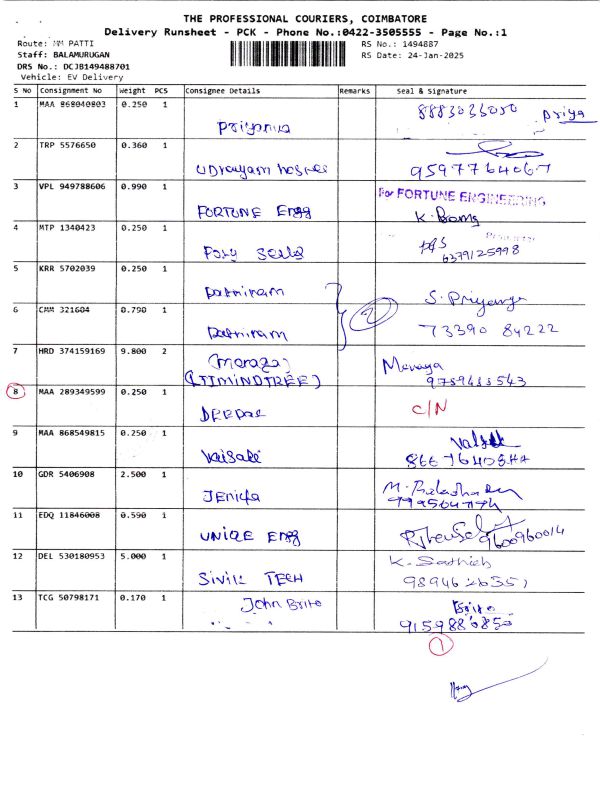 THE PROFESSIONAL COURIERS, COIMBATORE
Delivery Runsheet - PCK - Phone No.:0422-3505555 - Page No.:1
Route: MM PATTI
RS No.: 1494887
Staff: BALAMURUGAN
RS Date: 24-Jan-2025
DRS No.: DCJB149488701
Vehicle: EV Delivery
S No Consignment No Weight PCS Consignee Details Remarks Seal & Signature
1 MAA 868040803 0.250 1 Priya
2 TRP 5576650 0.360 1
9597764067
3 VPL 949788606 0.990 1 For FORTUNE ENGINEERING
FORTUNE Engg
4 MTP 1340423 0.250 1
Poly Seals 6379125998
5 KRR 5702039 0.250 1
Patniram S. Priyanga
6 CMM 321604 0.790 1 2
Patniram 73390 84222
7 HRD 374159169 9.800 2
(LTIMINDTREE)
8 MAA 289349599 0.250 1 C/N
DEEPAK
9 MAA 868549815 0.250 1
Vaisali
10 GDR 5406908 2.500 1
Jenifa
11 EDQ 11846008 0.590 1
UNIQE Engg 9600960014
12 DEL 530180953 5.000 1 K. Sathish
SIVIL TECH
13 TCG 50798171 0.170 1 John Brito
1